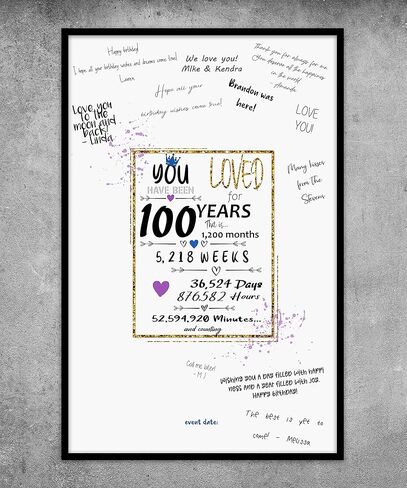 Happy birthday!
I hope all your birthday wishes and dreams come true!
Laura
We love you!
Mike & Kendra
Thank you for always for me
You deserve all the happiness
in the world
Amanda
Brandon was
here!
Hope all your
birthday wishes come true!
Love you
to the
moon and
back!
Linda
LOVE
YOU!
Many kisses
from The
Stevens
YOU
HAVE BEEN
LOVED
for
100 YEARS
That is...
1,200 months
5,218 WEEKS
36,524 Days
876582 Hours
52,594,920 Minutes...
and counting
Call me later!
- M.J
Wishing you a day filled with happi
ness and a year filled with joy.
Happy birthday!
The best is yet to
come! - Melissa
event date: